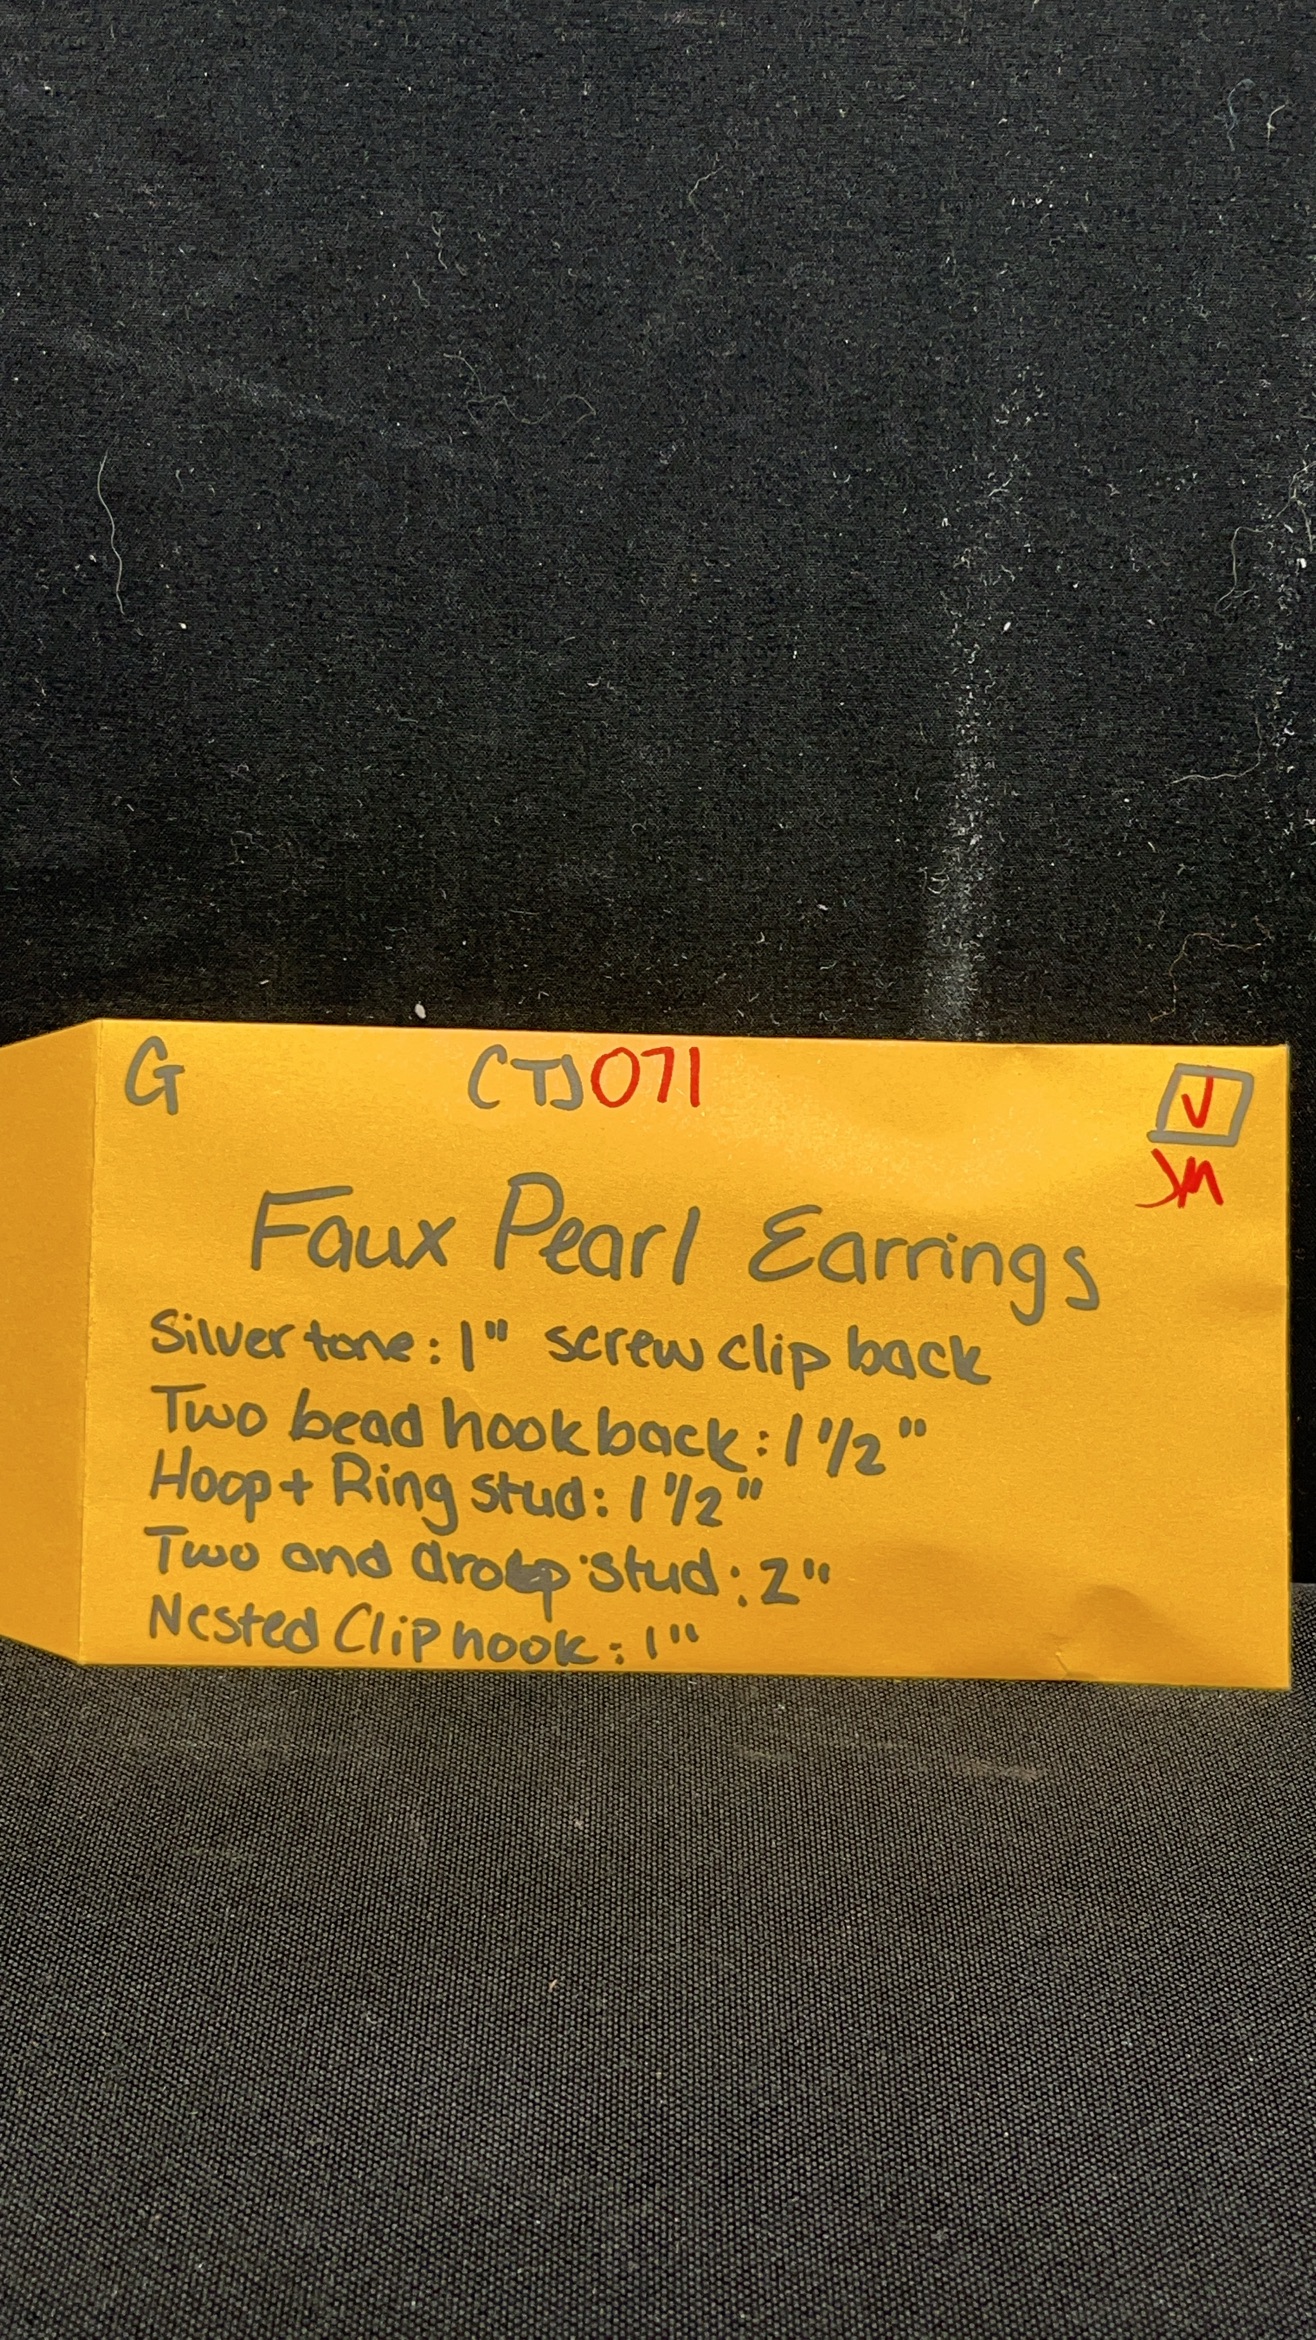 G CTJ071
JM
Faux Pearl Earrings
Silver tone: 1" screw clip back
Two bead hook back: 1 1/2"
Hoop + Ring stud: 1 1/2"
Two and drop stud: 2"
Nested Clip hook: 1"